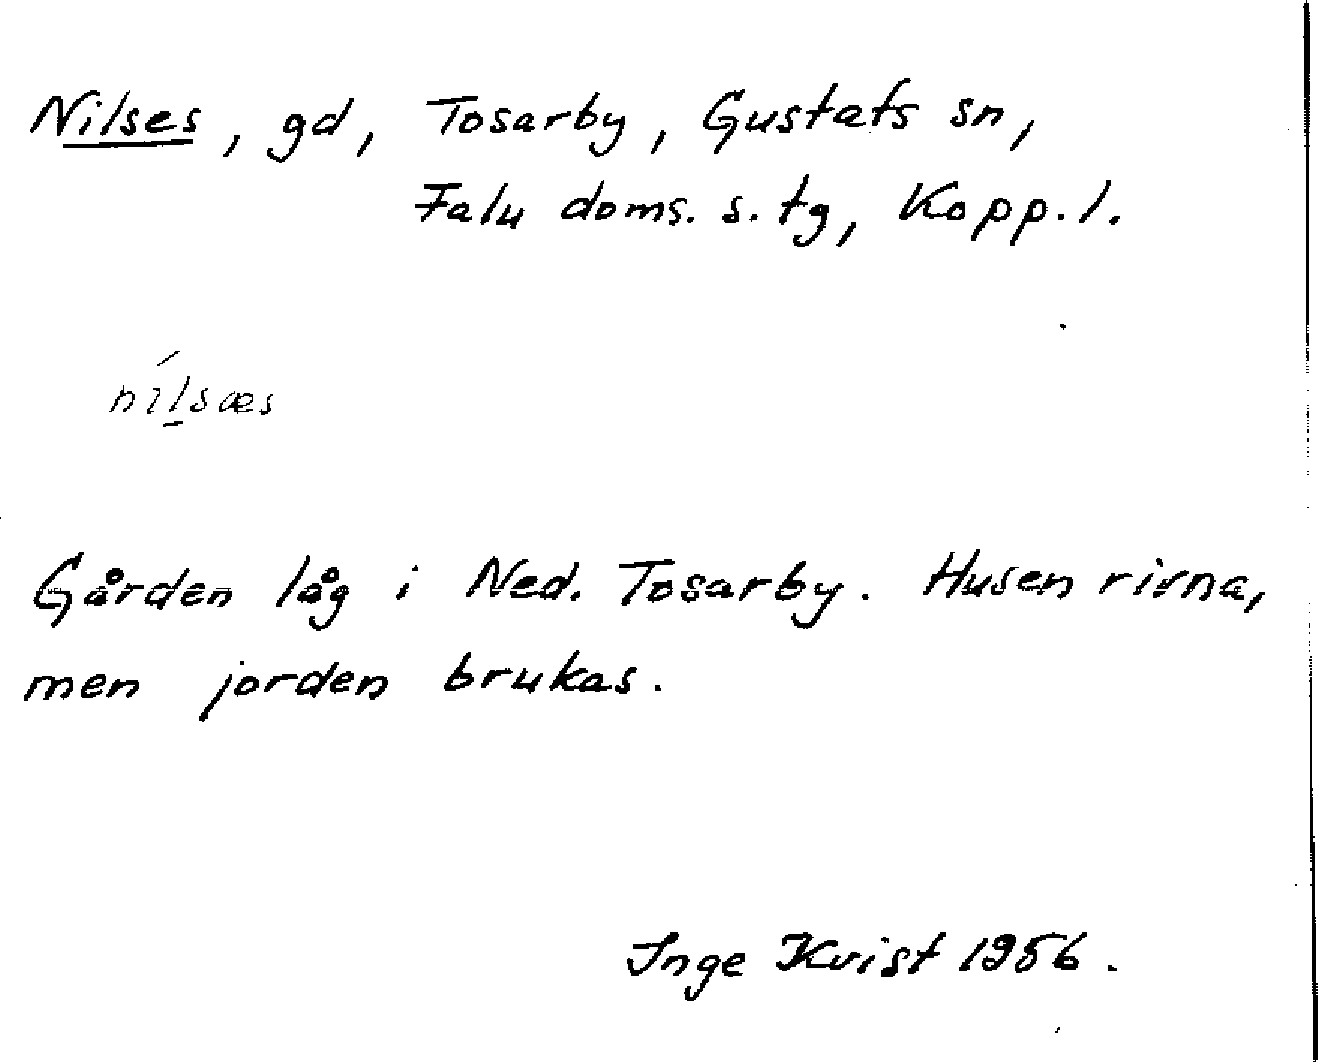 Nilses, gd, Tosarby, Gustafs sn,
Falu doms. s. tg, Kopp. l.
nı́lsæs
Gården låg i Ned. Tosarby. Husen rivna,
men jorden brukas.
Inge Kvist 1956.